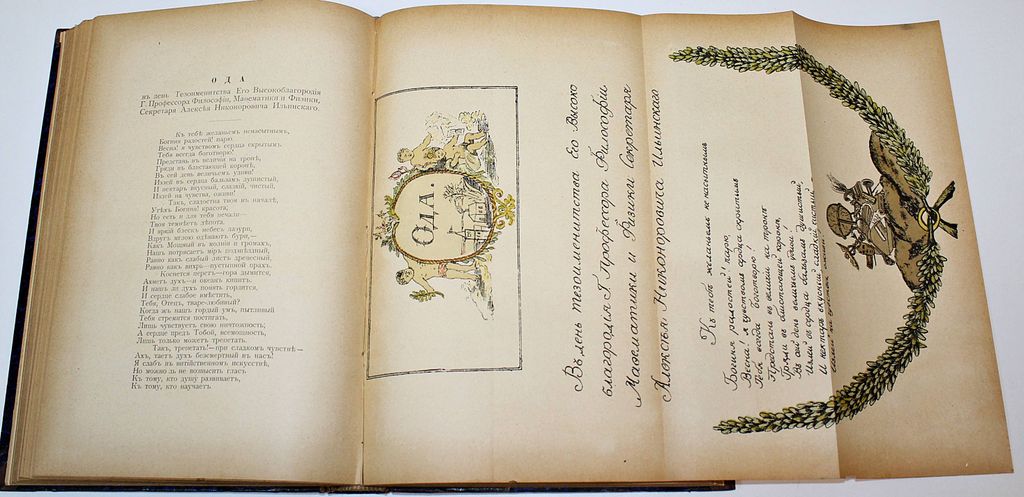 ОДА
въ день Тезоименитства Его Высокоблагородія
Г. Профессора Философіи, Математики и Физики,
Секретаря Алексѣя Никоноровича Ильинскаго.
Къ тебѣ желаньемъ ненасытнымъ,
Богиня радостей! парю.
Весна! я чувствомъ сердца скрытымъ
Тебя всегда боготворю!
Предстань въ величіи на тронѣ,
Гряди въ блистающей коронѣ,
Въ сей день величьемъ удиви!
Излей въ сердца бальзамъ душистый,
И нектаръ вкусный, сладкій, чистый,
Излей на чувства, оживи!
Такъ, сладостна твоя въ началѣ,
Утѣхъ Богиня! красота;
Но есть и для тебя печали—
Твоя темнѣетъ лѣпота.
И яркій блескъ небесъ лазури,
Вдругъ мглою одѣваютъ бури,—
Какъ Мощный въ молніи и громахъ,
Нашъ потрясаетъ міръ подзвѣздный,
Равно какъ слабый листъ древесный,
Равно какъ вихрь—пустынной прахъ.
Коснется перстъ—гора дымится,
Дхнетъ духъ—и океанъ кипитъ.
И нашъ ли духъ понять гордится,
И сердце слабое вмѣстить,
Тебя, Отецъ, тваре-любивый?
Когда жъ нашъ гордый умъ, пытливый
Тебя стремится постигать,
Лишь чувствуетъ свою ничтожность;
А сердце предъ Тобой, всемощность,
Лишь только можетъ трепетать.
Такъ, трепетать!—при сладкомъ чувствѣ—
Ахъ, таетъ духъ безсмертный въ насъ!
Я слабъ въ витійственномъ искусствѣ,
Но можно ль не возвысить гласъ
Къ тому, кто душу развиваетъ,
Къ тому, кто научаетъ
ОДА.
Въ день тезоименитства Его Высоко
благородія Г. Профессора Философіи
Математики и Физики Секретаря
Алексѣя Никоноровича Ильинскаго
Къ тебѣ желаньемъ не насытнымъ
Богиня радостей! парю,
Весна! я чувствомъ сердца скрытымъ
Тебя всегда боготворю!
Предстань въ величіи на тронѣ
Гряди въ блистающей коронѣ,
Въ сей день величьемъ удиви!
Излей въ сердца бальзамъ душистый,
И нектаръ вкусный сладкій чистый